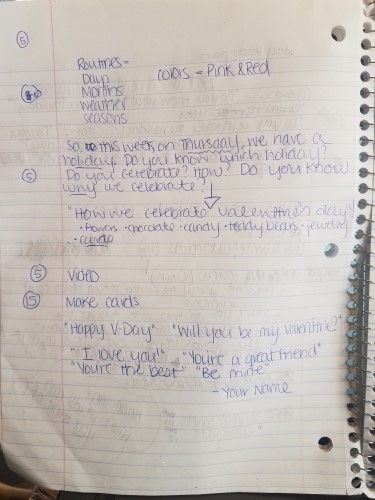 5
Routines =
Days
colors = Pink & Red
Months
weather
seasons
So, this week, on Thursday, we have a
holiday. Do you know which holiday?
5 Do you celebrate? How? Do you know
why we celebrate?
"How we celebrate valentine's day"
• flowers • chocolate • candy • teddy bears • jewelry
• cards
5 Video
15 Make cards
"Happy V-Day" "Will you be my valentine?"
"I love you!" "You're a great friend"
"You're the best" "Be mine"
- Your Name